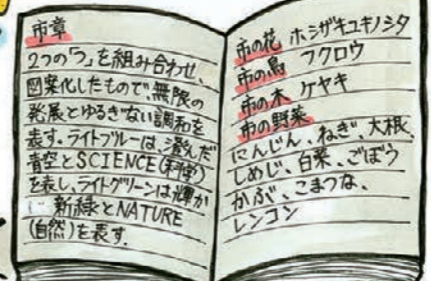 市章
2つの「つ」を組み合わせ、
図案化したもので、無限の
発展とゆるぎない調和を
表す。ライトブルーは、澄んだ
青空とSCIENCE(科学)
を表し、ライトグリーンは輝か
新緑とNATURE
(自然)を表す。
市の花 ホシザキユキノシタ
市の鳥 フクロウ
市の木 ケヤキ
市の野菜
にんじん、ねぎ、大根、
しめじ、白菜、ごぼう
かぶ、こまつな、
レンコン